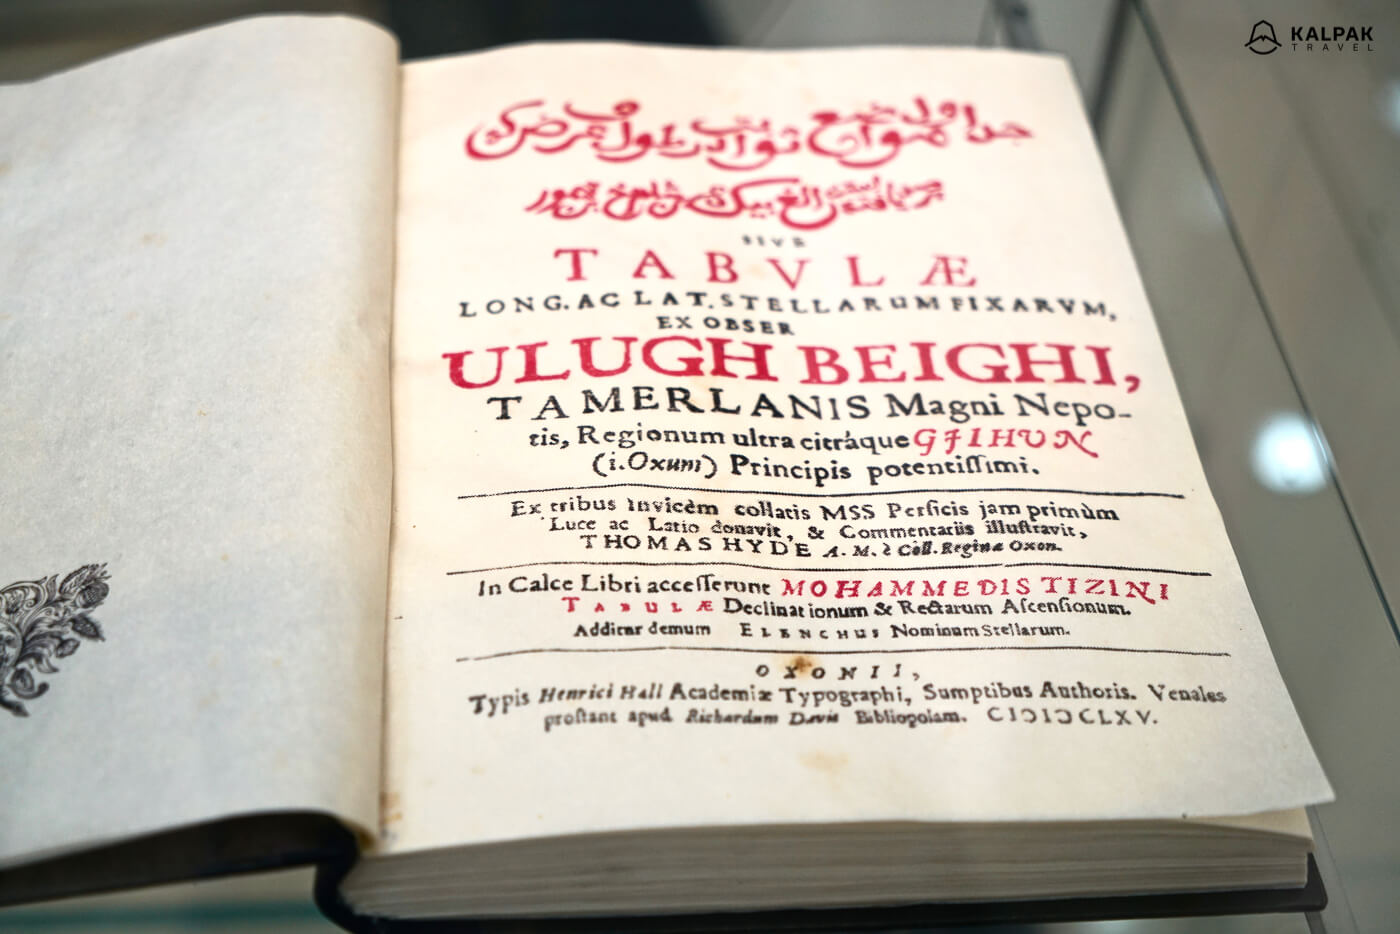 KALPAK
TRAVEL
جداول
SIVE
TABVLÆ
LONG. AC LAT. STELLARUM FIXARVM,
EX OBSER
ULUGH BEIGHI,
TAMERLANIS Magni Nepo-
tis, Regionum ultra citráque GJIHUN
(i. Oxum) Principis potentiſſimi.
Ex tribus invicèm collatis MSS Perſicis jam primùm
Luce ac Latio donavit, & Commentariis illuſtravit,
THOMAS HYDE A. M. è Coll. Reginæ Oxon.
In Calce Libri acceſſerunt MOHAMMEDIS TIZINI
TABULÆ Declinationum & Rectarum Aſcenſionum.
Additur demum ELENCHUS Nominum Stellarum.
OXONII,
Typis Henrici Hall Academiæ Typographi, Sumptibus Authoris. Venales
proſtant apud Richardum Davis Bibliopolam. CIƆIƆCLXV.